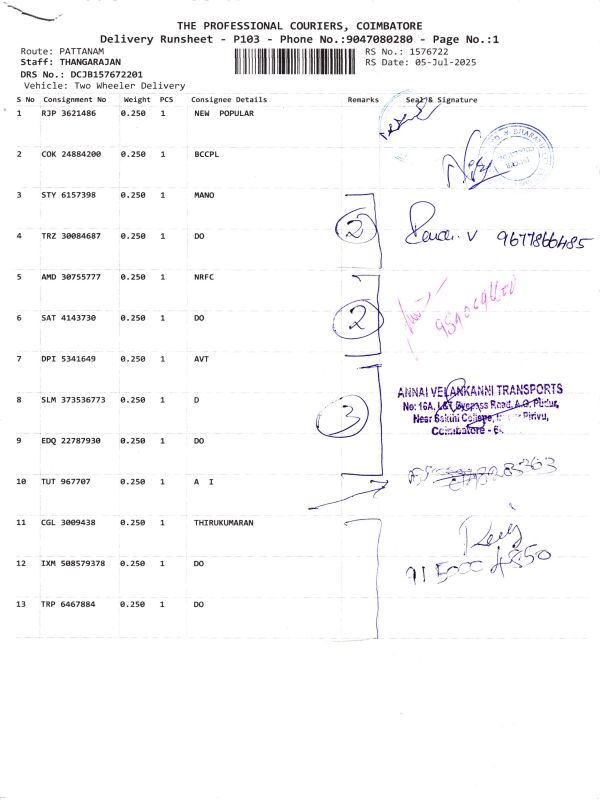 THE PROFESSIONAL COURIERS, COIMBATORE
Delivery Runsheet - P103 - Phone No.:9047080280 - Page No.:1
Route: PATTANAM
RS No.: 1576722
Staff: THANGARAJAN
RS Date: 05-Jul-2025
DRS No.: DCJB157672201
Vehicle: Two Wheeler Delivery
S No Consignment No Weight PCS Consignee Details Remarks Seal & Signature
1 RJP 3621486 0.250 1 NEW POPULAR
2 COK 24884200 0.250 1 BCCPL
3 STY 6157398 0.250 1 MANO
2
4 TRZ 30084687 0.250 1 DO
V 9677866485
5 AMD 30755777 0.250 1 NRFC
6 SAT 4143730 0.250 1 DO
2
7 DPI 5341649 0.250 1 AVT
ANNAI VELANKANNI TRANSPORTS
8 SLM 373536773 0.250 1 D
3
No: 16A, L&T Bypass Road, A.G. Pudur,
Near Sakthi College, Pirivu,
Coimbatore - 6
9 EDQ 22787930 0.250 1 DO
10 TUT 967707 0.250 1 A I
11 CGL 3009438 0.250 1 THIRUKUMARAN
12 IXM 508579378 0.250 1 DO
91 5000 4850
13 TRP 6467884 0.250 1 DO